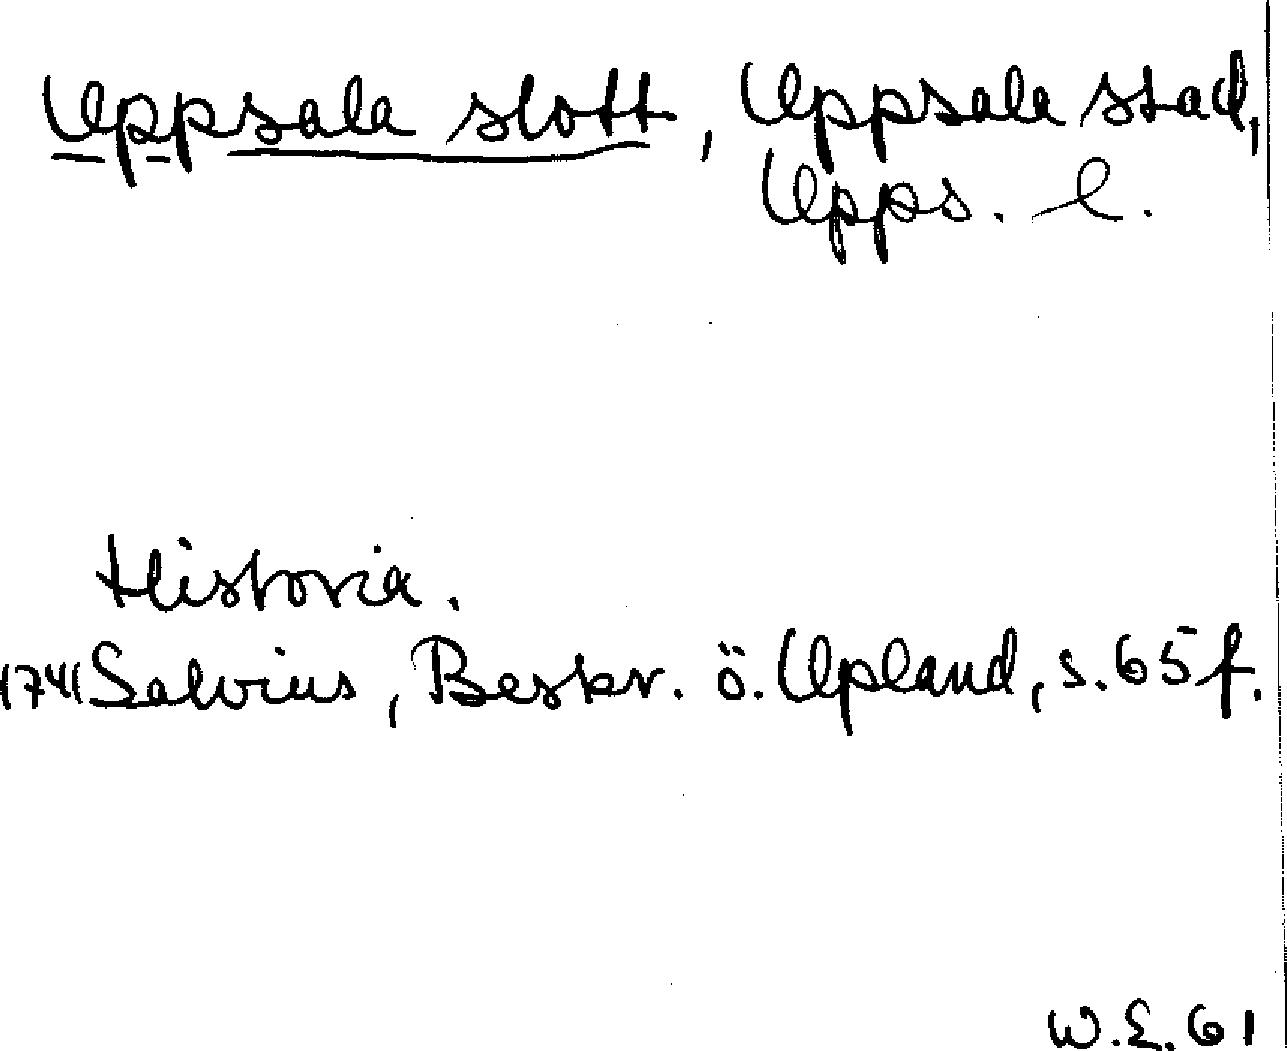 Uppsala slott, Uppsala stad,
Upps. l.
Historia.
1741 Salvius, Beskr. ö. Upland, s. 65 f.
W.E. 61